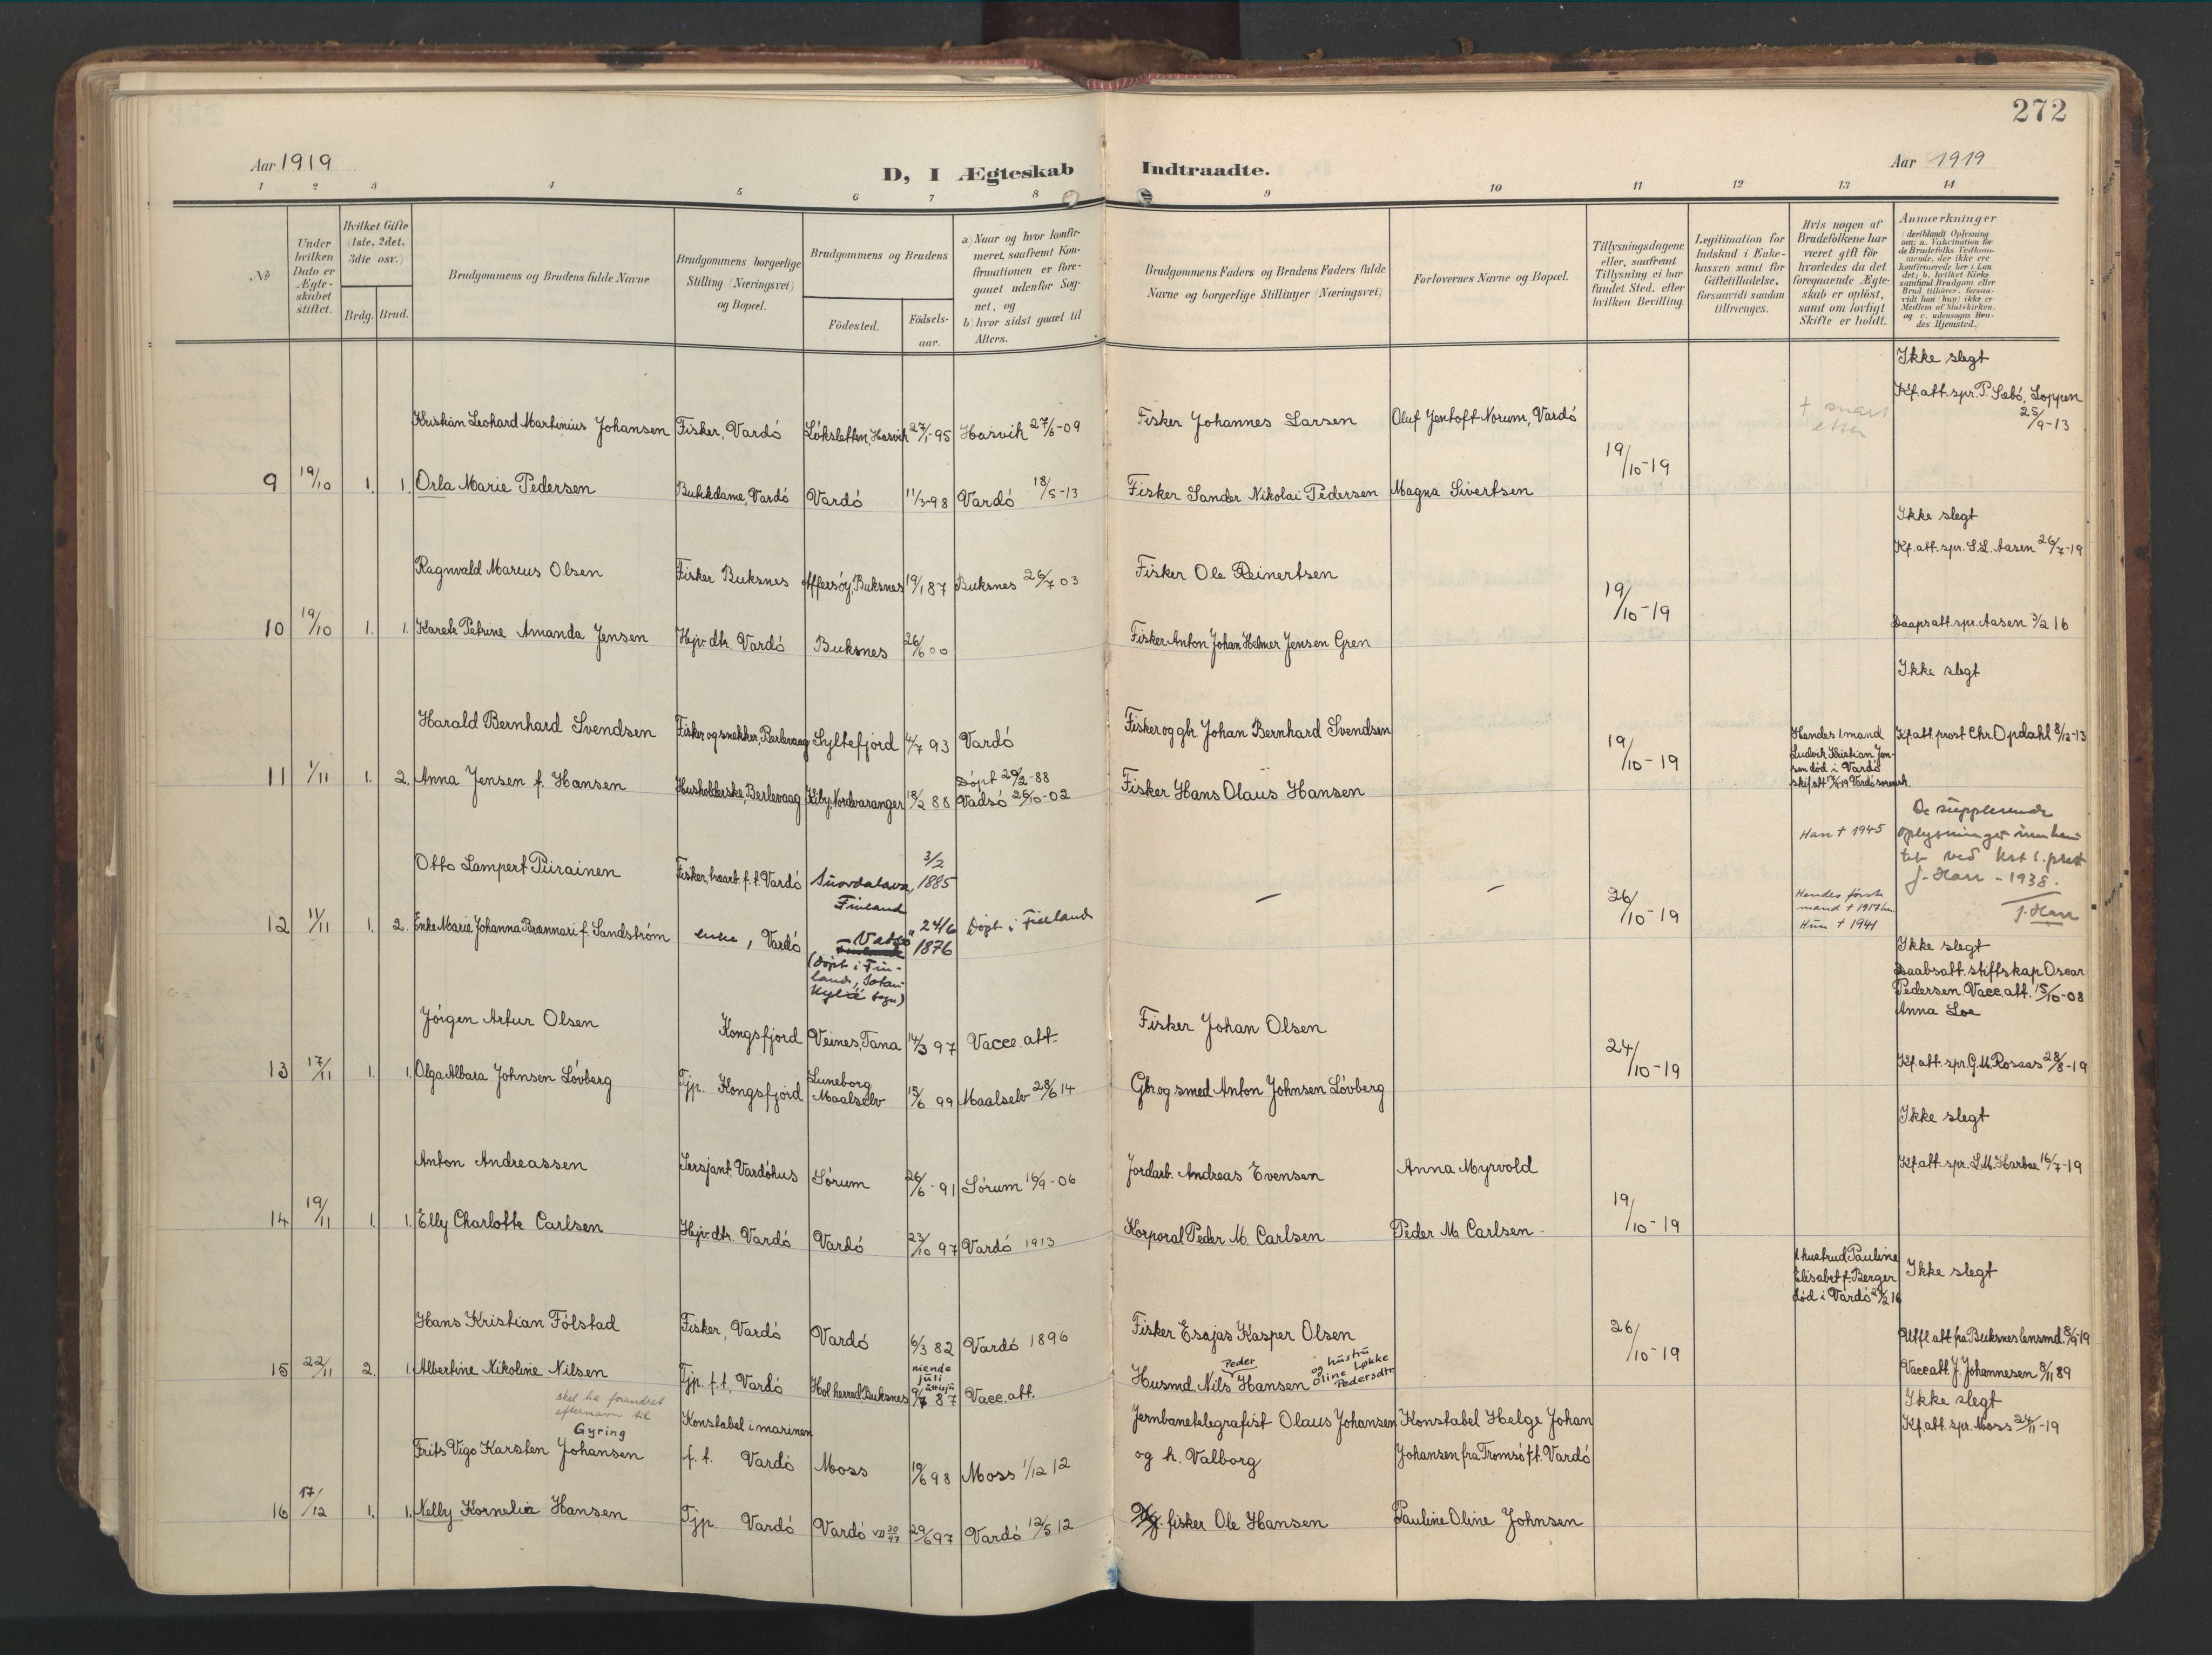 272
Aar 1919
D, I Ægteskab Indtraadte.
Aar 1919
1 2 3 4 5 6 7 8 9 10 11 12 13 14
No.
Under hvilken Dato er Ægteskabet stiftet.
Hvilket Gifte (1ste, 2det, 3die osv.)
Brdg. Brud.
Brudgommens og Brudens fulde Navne
Brudgommens borgerlige Stilling (Næringsvei) og Bopæl.
Brudgommens og Brudens
Födested.
Födselsaar.
a) Naar og hvor konfirmeret, saafremt Konfirmationen er foregaaet udenfor Sognet, og
b) hvor sidst gaaet til Alters.
Brudgommens Faders og Brudens Faders fulde Navne og borgerlige Stillinger (Næringsvei)
Forlovernes Navne og Bopæl.
Tillysningsdagene eller, saafremt Tillysning ei har fundet Sted, efter hvilken Bevilling.
Legitimation for Indskud i Enkekassen samt for Giftetilladelse, forsaavidt saadan tiltrænges.
Hvis nogen af Brudefolkene har været gift för hvorledes da det foregaaende Ægteskab er oplöst, samt om lovligt Skifte er holdt.
Anmærkninger (deriblandt Oplysning om: a. Vakcination for de Brudefolks Vedkommende, der ikke ere konfirmerede her i Landet; b. hvilket Kirkesamfund Brudgom eller Brud tilhörer, forsaavidt han (hun) ikke er Medlem af Statskirken, og c. udensogns Brudes Hjemsted.)
Ikke slegt
Kf. att. spr. P. Sæbó, Loppen 25/9-13
Kristian Leohard Martinius Johansen Fisker, Vardó Lóksletten, Hasvik 27/1-95 Hasvik 27/6-09 Fisker Johannes Larsen Oluf Jentoft Norum, Vardó
9 19/10 1. 1. Orla Marie Pedersen Bukkdame, Vardó Vardó 11/3-98 Vardó 18/5-13 Fisker Sander Nikolai Pedersen Magna Sivertsen 19/10-19
Ikke slegt
Kf. att. spr. S. L. Aasen 26/7-19
Ragnvald Marcus Olsen Fisker Buksnes Buksnes 19/1 87 Buksnes 26/7 03 Fisker Ole Reinertsen
10 19/10 1. 1. Karete Petrine Amanda Jensen Hjv. dtr. Vardó Buksnes 26/6 00 Fisker Anton Johan Helmer Jensen Gren 19/10-19 Daapsatt. spr. Aasen 3/2 16
Ikke slegt
Harald Bernhard Svendsen Fisker og snekker, Berlevaag Syltefjord 4/7 93 Vardó Fisker og gbr. Johan Bernhard Svendsen Kf. att. prost Chr. Opdahl 8/12-13
Hendes 1. mand Ludvik Kristian Jensen död i Vardó
11 1/11 1. 2. Anna Jensen f. Hansen Husholderske, Berlevaag Kiby, Nordvaranger 18/2 88 Dópt 29/2-88 Vadsó 26/10-02 Fisker Hans Olaus Hansen 19/10-19
De supplerende oplysninger innhentet ved kst. s.prest J. Harr - 1938.
J. Harr
Han † 1945
Otto Lampert Piirainen Fisker, f. t. Vardó Finland 3/2 1885
12 11/11 1. 2. Enke Marie Johanna Brannari f. Sandström enke, Vardó Vadsø (døpt i Finland, sogn) 24/6 1876 Döpt i Finland - - 26/10-19
Hendes förste mand † 1917
Hun † 1941
Ikke slegt
Daabsatt. stiftskap. Oscar Pedersen Vacc. att. 15/10-08 Anna Loe
Jörgen Artur Olsen Kongsfjord Veines, Tana 14/3 97 Vacce. att. Fisker Johan Olsen
13 17/11 1. 1. Olga Albara Johnsen Lóvberg Tjp. Kongsfjord Luneborg Maalselv 15/6 99 Maalselv 28/6 14 Gbr og smed Anton Johnsen Lóvberg 24/10-19 Kf. att. spr. G. M. Rosaas 28/8-19
Ikke slegt
Anton Andreassen Sersjant, Vardóhus Sórum 26/6-91 Sórum 16/9-06 Jordarb. Andreas Evensen Anna Myrvold Kf. att. spr. L. M. Harboe 16/7-19
14 19/11 1. 1. Elly Charlotte Carlsen Hjv. dtr. Vardó Vardó 23/10 97 Vardó 1913 Korporal Peder M. Carlsen Peder M Carlsen 19/10-19
1 hustrud Pauline Elisabet f. Berger död i Vardó
Ikke slegt
Hans Kristian Fólstad Fisker, Vardó Vardó 6/3 82 Vardó 1896 Fisker Esajas Kasper Olsen
15 22/11 2. 1. Albertine Nikoline Nilsen Tjp. f. t. Vardó Hol herred, Buksnes niende juli 9/7 87 Vacc. att. Husmd. Nils Peder Hansen og hustru Oline Løkke Pedersdtr 26/10-19 Vacc att J. Johannesen 8/11 89
skal ha forandret efternavn til Gyring
Ikke slegt
Kf. att. spr. Moss 24/11-19
Frits Vigo Karsten Johansen Konstabel i marinen f. t. Vardó Moss 19/6 98 Moss 1/12 12 Jernbanetelegrafist Olaus Johansen og h. Valborg Konstabel Helge Johan Johansen fra Tromsó f. t. Vardó
16 17/12 1. 1. Nelly Kornelia Hansen Tjp. Vardó Vardó 29/6 97 Vardó 12/5 12 fisker Ole Hansen Pauline Oline Johnsen